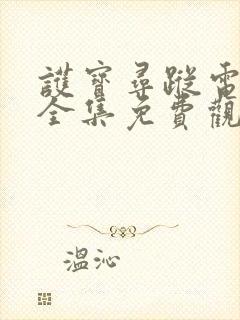 護寶尋蹤電
全集免費觀
溫沁